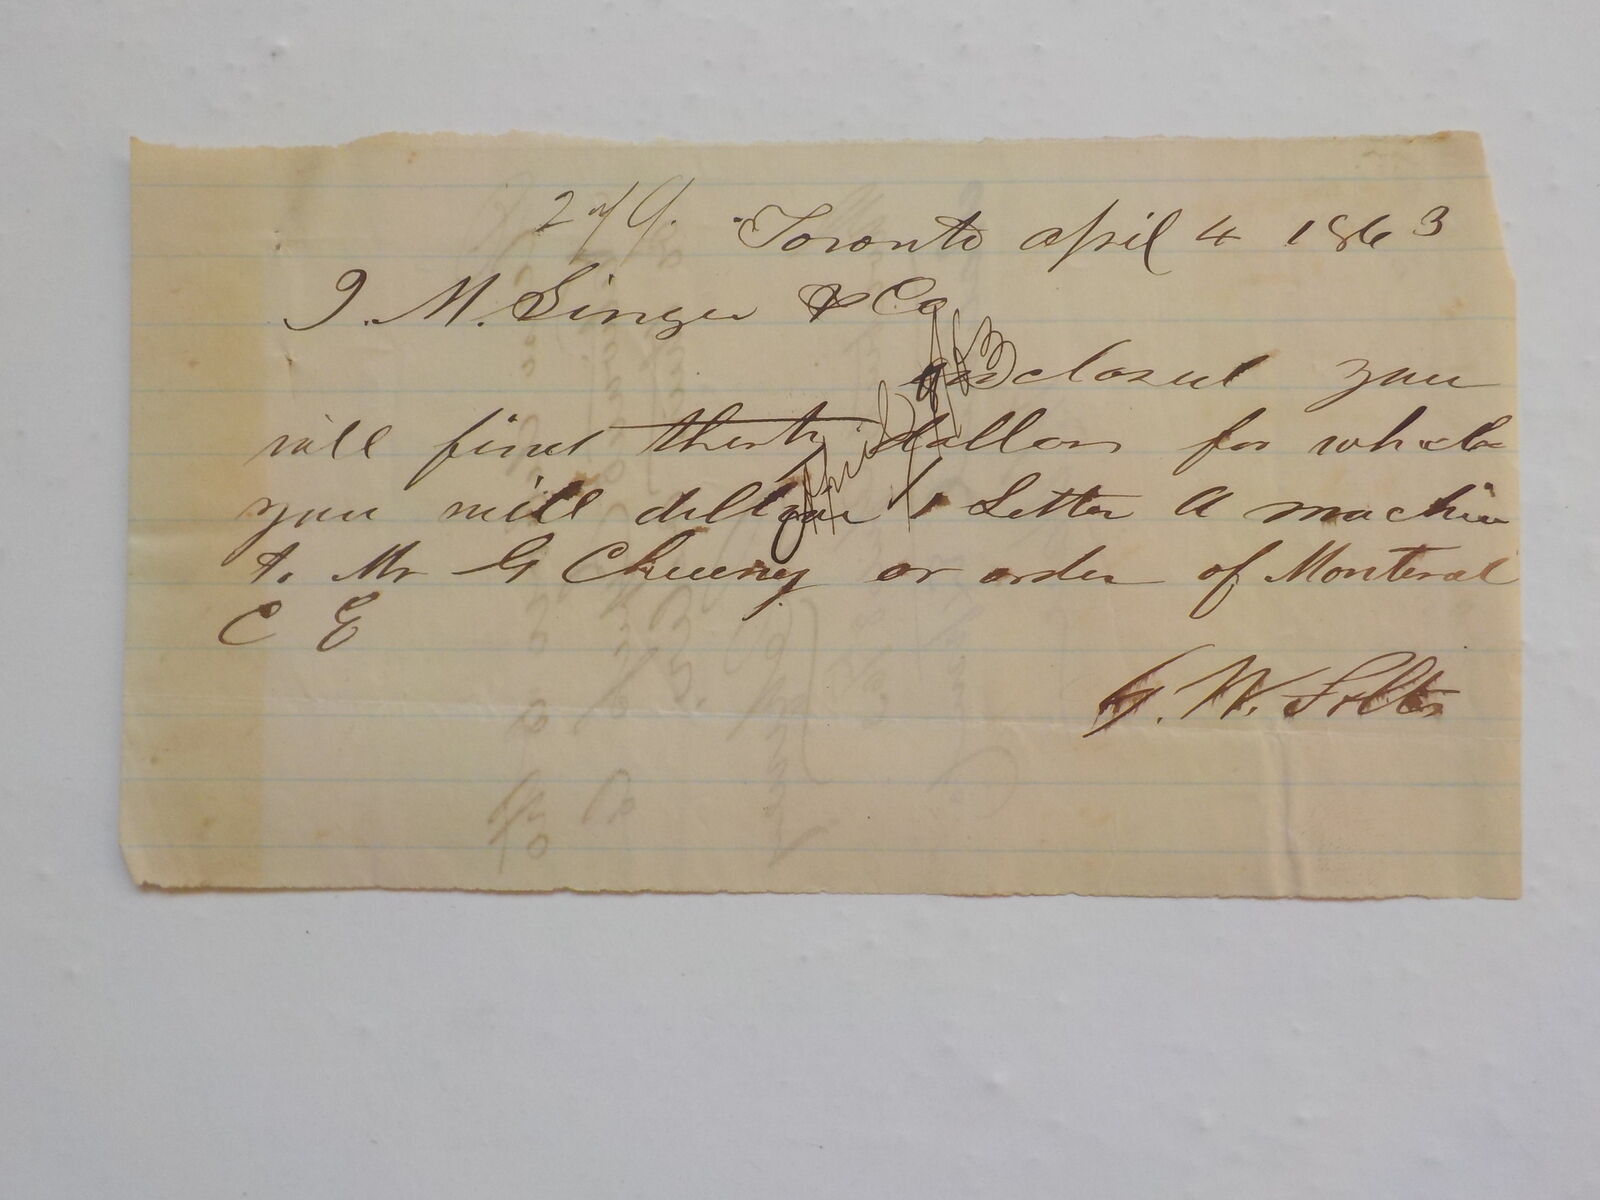 Toronto april 4 1863
I. M. Singer & Co
enclosed you
will find thirty dollars for which
you will deliver 1 Letter A machine
to Mr G Cheeney or order of Montreal
C E
April 9/63
G. W. Folts